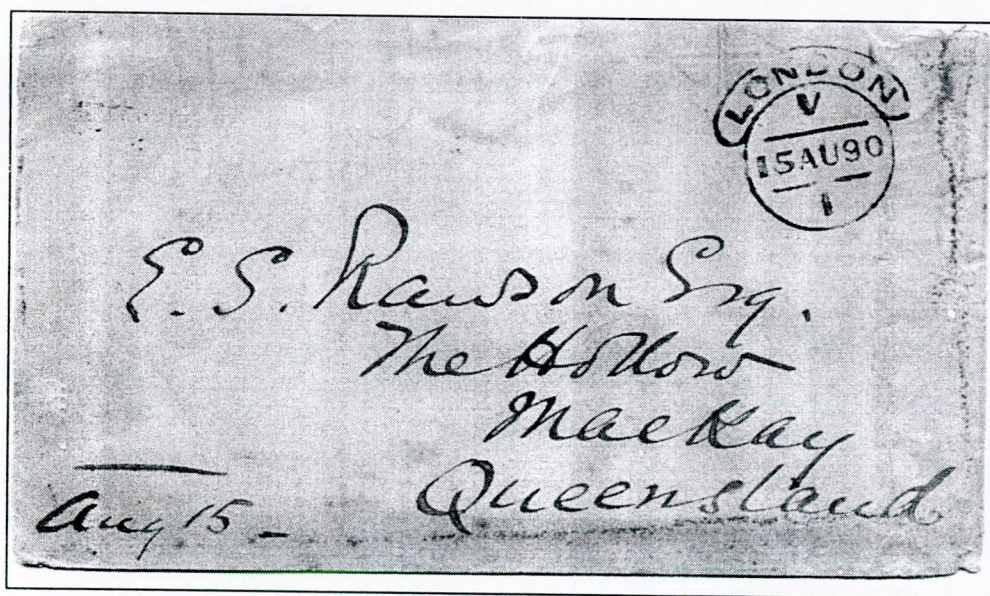 LONDON
V
15AU90
1
E. S. Rawson Esq.
The Hollow
MacKay
Queensland
Aug 15 -